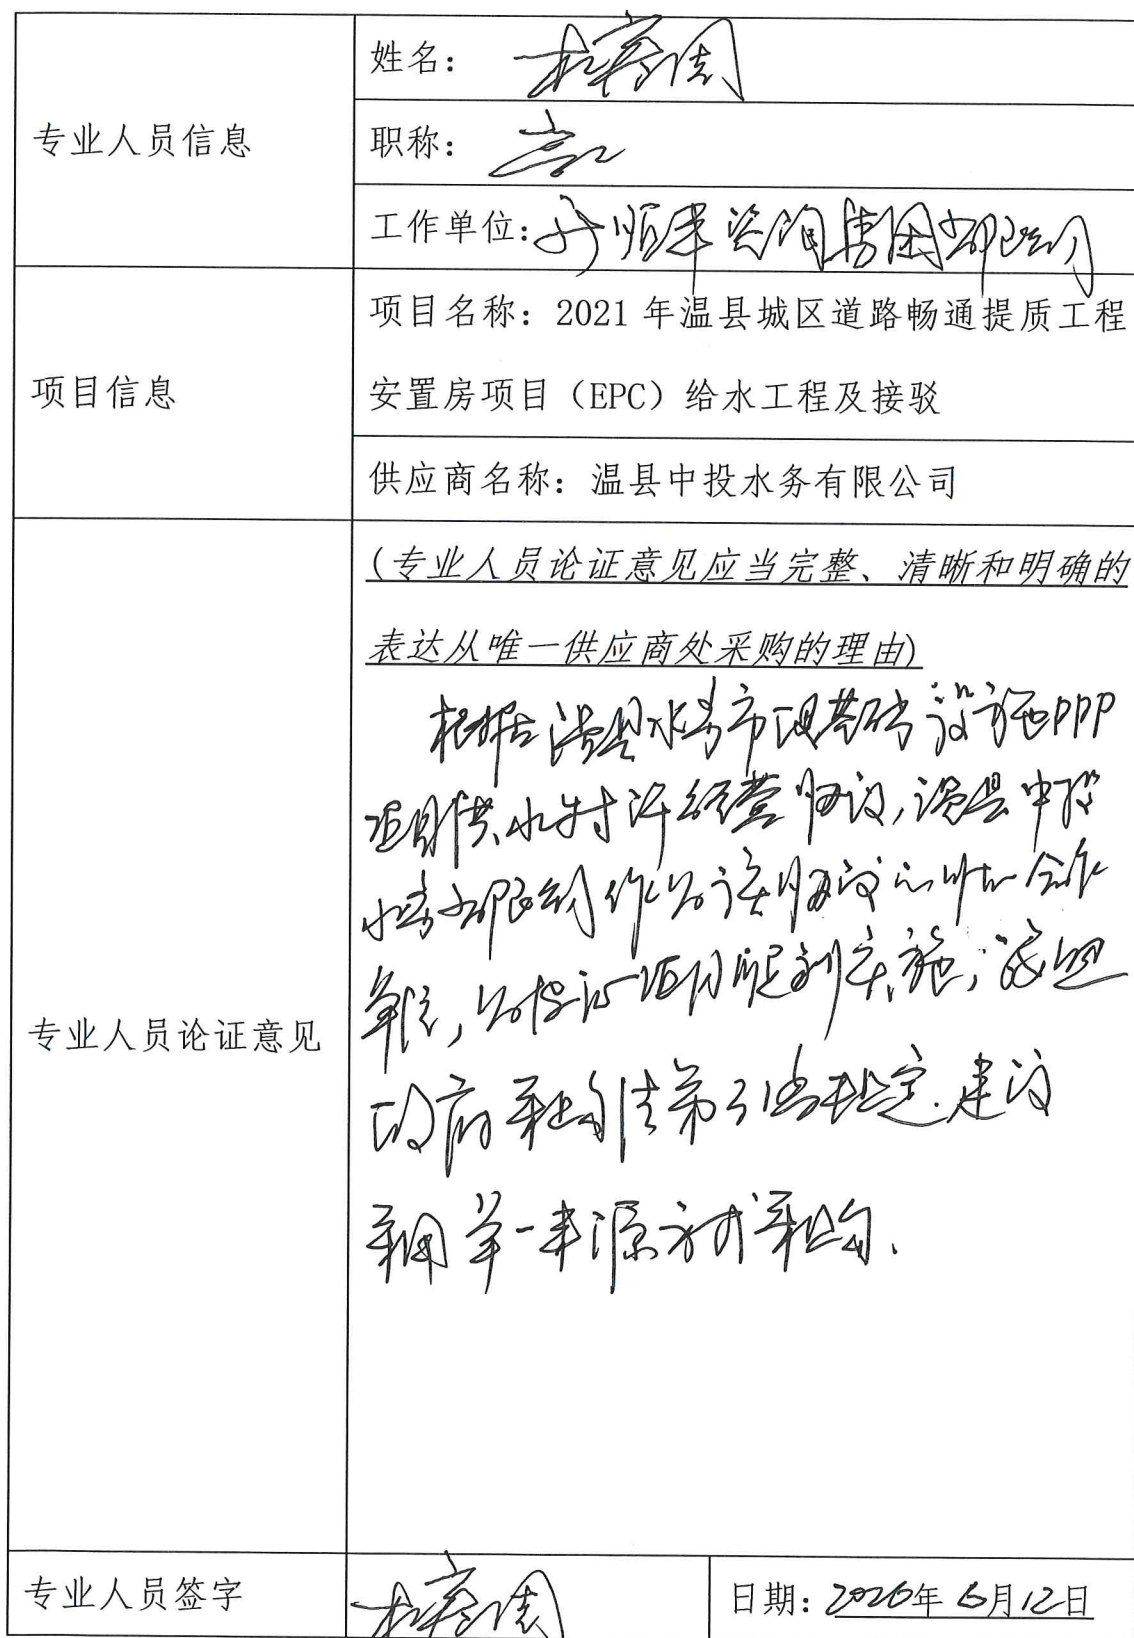 专业人员信息
姓名：
职称：高工
工作单位：咨询集团有限公司
项目信息
项目名称：2021年温县城区道路畅通提质工程
安置房项目（EPC）给水工程及接驳
供应商名称：温县中投水务有限公司
专业人员论证意见
(专业人员论证意见应当完整、清晰和明确的
表达从唯一供应商处采购的理由)
根据温县水务市政基础设施PPP
项目供水特许经营协议，温县中投
水务有限公司作为该协议的唯一合作
单位，为保证项目顺利实施，
政府采购法第31条规定.建议
采用单一来源方式采购.
专业人员签字
日期：2026年6月12日